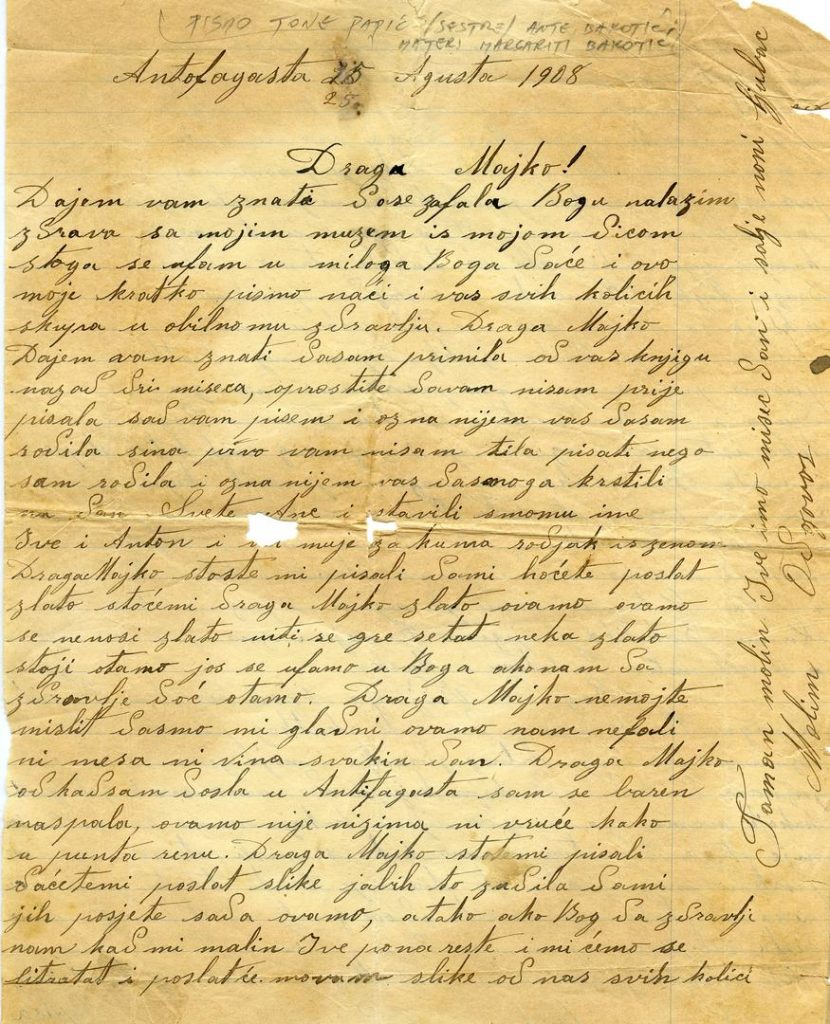 (PISMO TONE PAPIĆ /SESTRE/ ANTE BAKOTIĆ
MATERI MARGARITI BAKOTIĆ)
Antofagasta 25 Agusta 1908
25.
Draga Majko!
Dajem vam znati dase zafala Bogu nalazim
zdrava sa mojim muzem is mojom dicom
stoga se ufam u miloga Boga daće i ovo
moje kratko pismo naći i vas svih kolicih
skupa u obilnomu zdravlju. Draga Majko
Dajem vam znati dasam primila od vas knjigu
nazad dri miseca, oprostite davam nisam prije
pisala sad vam pisem i ozna nijem vas dasam
rodila sina prvo vam nisam tila pisati nego
sam rodila i ozna nijem vas dasmoga krstili
na dan Svete Ane i stavili smomu ime
Ive i Anton i muje za kuma rodjak is zenom
Draga Majko stoste mi pisali dami hoćete poslat
zlato stoćemi draga Majko zlato ovamo ovamo
se nenosi zlato niti se gre setat neka zlato
stoji otamo jos se ufamo u Boga ako nam da
zdravlje doć otamo. Draga Majko nemojte
mislit dasmo mi gladni ovamo nam nefali
ni mesa ni vina svakin dan. Draga Majko
od kadsam dosla u Antifagasta sam se baren
naspala, ovamo nije nizima ni vruće kako
u punta renu. Draga Majko stotemi pisali
daćetemi poslat slike jabih to zadila dami
jih posjete sada ovamo, a tako ako Bog da zdravlje
nam kad mi malin Ive pona reste i mi ćemo se
litratat i poslat će movam slike od nas svih kolici
Taman molin Ive imo misec dan i salje noni bjubac
Molim Odgovor